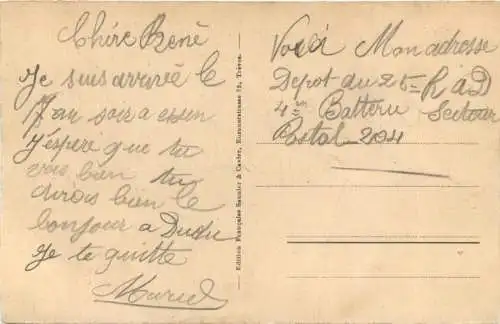 Chire René
Je suis arrivée le
7 au soir a essen
j'espere que tu
vas bien tu
dirais bien le
bonjour a Dudu
Je te quitte
Marcel
Edition Française Saunier & Cavler, Eurenerstrasse 73, Trèves.
Voici Mon adresse
Depot du 25e R a D
4e Batteri Secteur
Postal 204